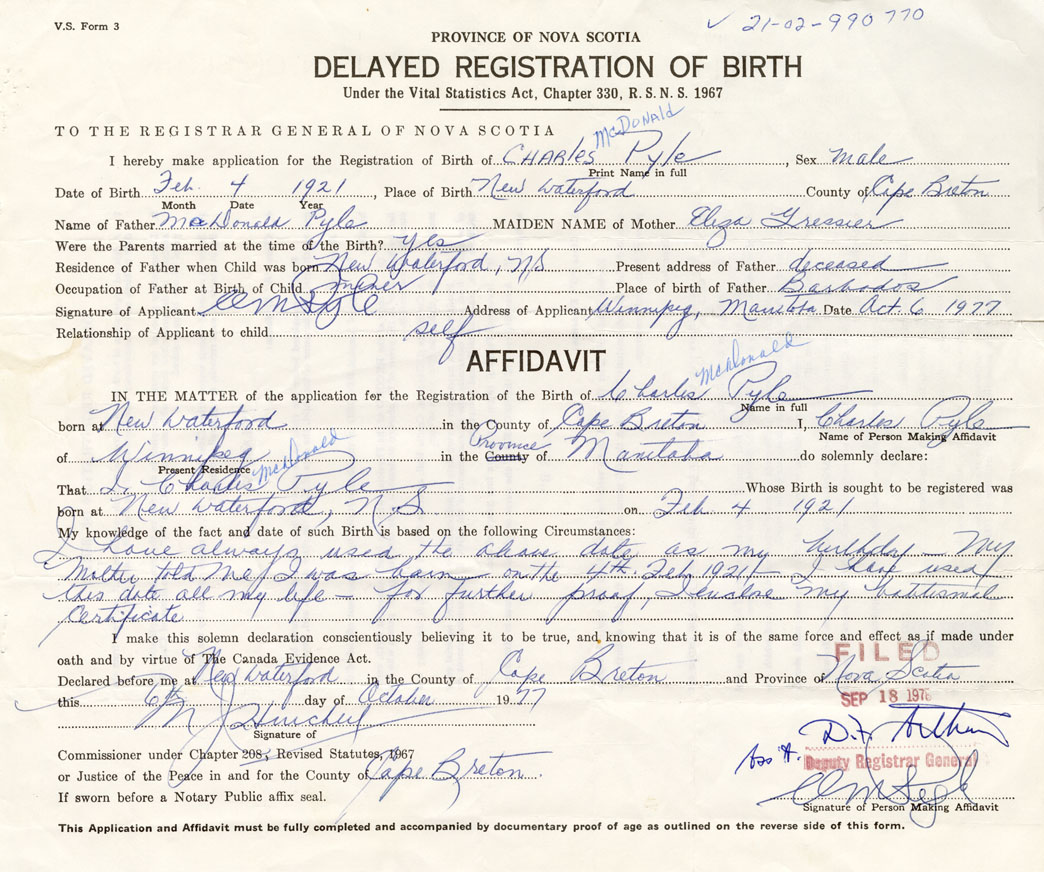 V.S. Form 3
✓ 21-02-990 770
PROVINCE OF NOVA SCOTIA
DELAYED REGISTRATION OF BIRTH
Under the Vital Statistics Act, Chapter 330, R.S.N.S. 1967
TO THE REGISTRAR GENERAL OF NOVA SCOTIA
McDonald
I hereby make application for the Registration of Birth of CHARles Pyle, Sex male
Print Name in full
Date of Birth Feb. 4 1921, Place of Birth New Waterford County of Cape Breton
Month Date Year
Name of Father McDonald Pyle MAIDEN NAME of Mother Eliza Gressier
Were the Parents married at the time of the Birth? yes
Residence of Father when Child was born New Waterford, NS Present address of Father deceased
Occupation of Father at Birth of Child miner Place of birth of Father Barbados
Signature of Applicant CM Pyle Address of Applicant Winnipeg, Manitoba Date Oct. 6 1977
Relationship of Applicant to child self
AFFIDAVIT
McDonald
IN THE MATTER of the application for the Registration of the Birth of Charles Pyle
Name in full
born at New Waterford in the County of Cape Breton I, Charles Pyle
Name of Person Making Affidavit
Province
of Winnipeg in the County of Manitoba do solemnly declare:
Present Residence
McDonald
That I, Charles Pyle Whose Birth is sought to be registered was
born at New Waterford, N.S. on Feb 4 1921
My knowledge of the fact and date of such Birth is based on the following Circumstances:
I have always used the above date as my birthday – My
Mother told me I was born on the 4th Feb 1921 I have used
this date all my life – for further proof, I enclose my battismal
Certificate
I make this solemn declaration conscientiously believing it to be true, and knowing that it is of the same force and effect as if made under
oath and by virtue of The Canada Evidence Act.
FILED
Declared before me at New Waterford in the County of Cape Breton and Province of Nova Scotia
this 6th day of October 1977
SEP 18 1978
M J Hinchey
Signature of
Commissioner under Chapter 208, Revised Statutes, 1967
or Justice of the Peace in and for the County of Cape Breton.
Deputy Registrar General
CM Pyle
If sworn before a Notary Public affix seal.
Signature of Person Making Affidavit
This Application and Affidavit must be fully completed and accompanied by documentary proof of age as outlined on the reverse side of this form.